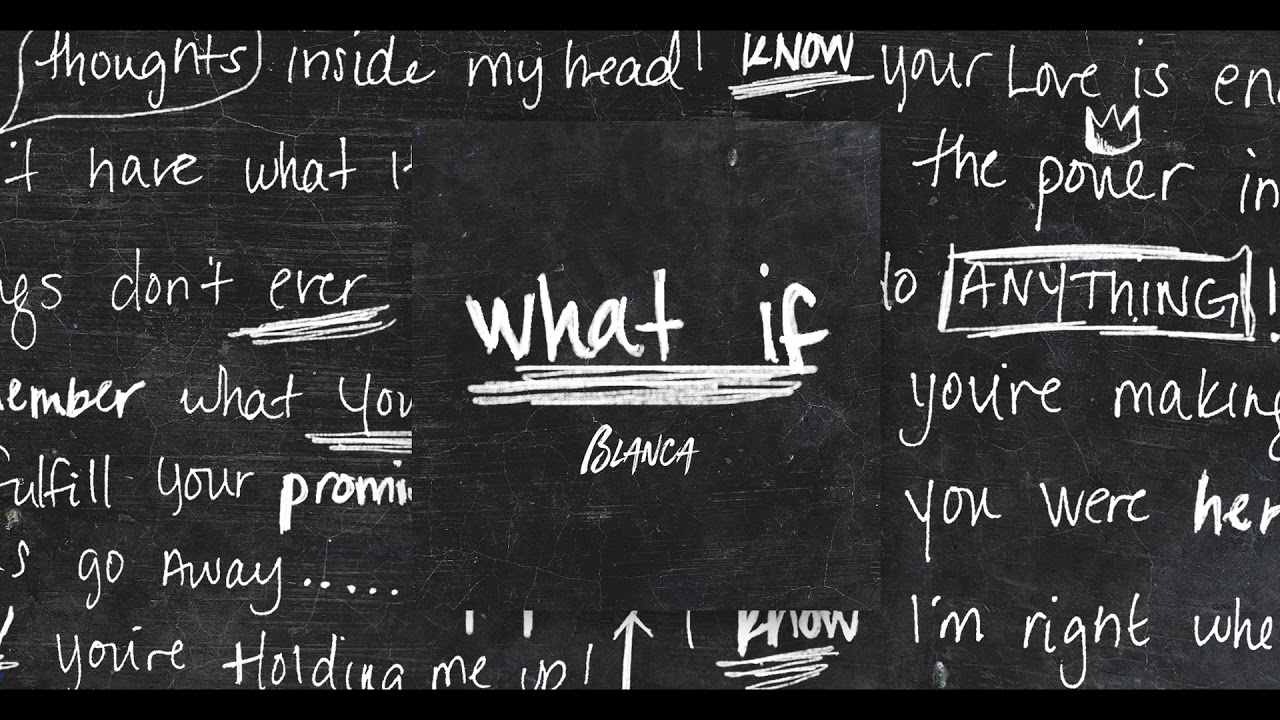 thoughts inside my head I KNOW your Love is en
't have what I
the power in
gs don't ever
ANYTHING!
what if
ember what You
you're making
BLANCA
fulfill your promi
you were her
s go Away.....
I'm right whe
you're Holding me up! ↑ I know